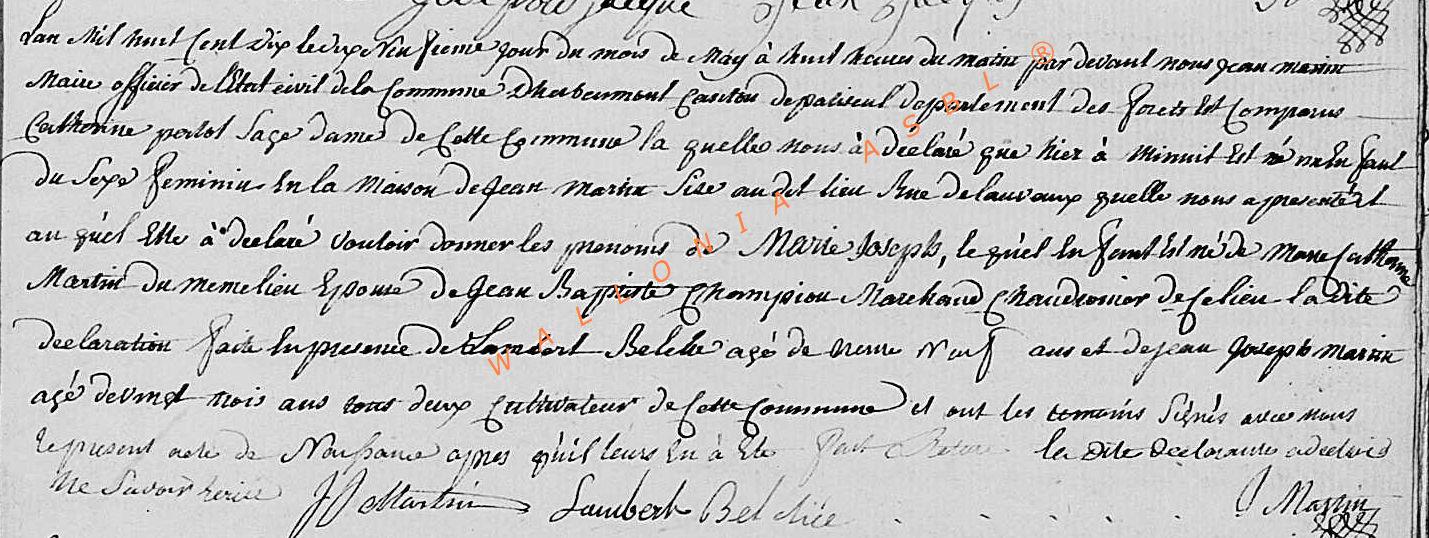 Lan Mil huit Cent Dix le dix Neufieme jour du mois de May à huit heures du matin par devant nous jean martin
Maire officier de l'Etat civil de la Commune d'herbeumont Canton de paliseul departement des forets Est Comparus
Catherine Sage dame de Cette Commune la quelle nous à déclaré que hier à Minuit Est né un En fant
du Sexe feminin En la Maison de Jean Martin Sise au dit lieu Rue de lauvaux quelle nous a presenté Et
au quel Elle à declaré vouloir donner les prenoms de Marie Joseph, le quel En fant Est né de Marie Catherine
Martin du meme lieu Epouse de Jean Baptiste Champion Marchand Chaudronier de Ce lieu la dite
declaration faite En presence de Lambert agé de trente Neuf ans et de jean Joseph Martin
agé de vingt trois ans tous deux Cultivateur de Cette Commune et ont les temoins Signés avec nous
le present acte de Naissance apres qu'il leurs En à Ete fait la dite declarante a declaré
Ne Savoir
JJ Martin Lambert Bel J Martin
WALLONIA ASBL ®